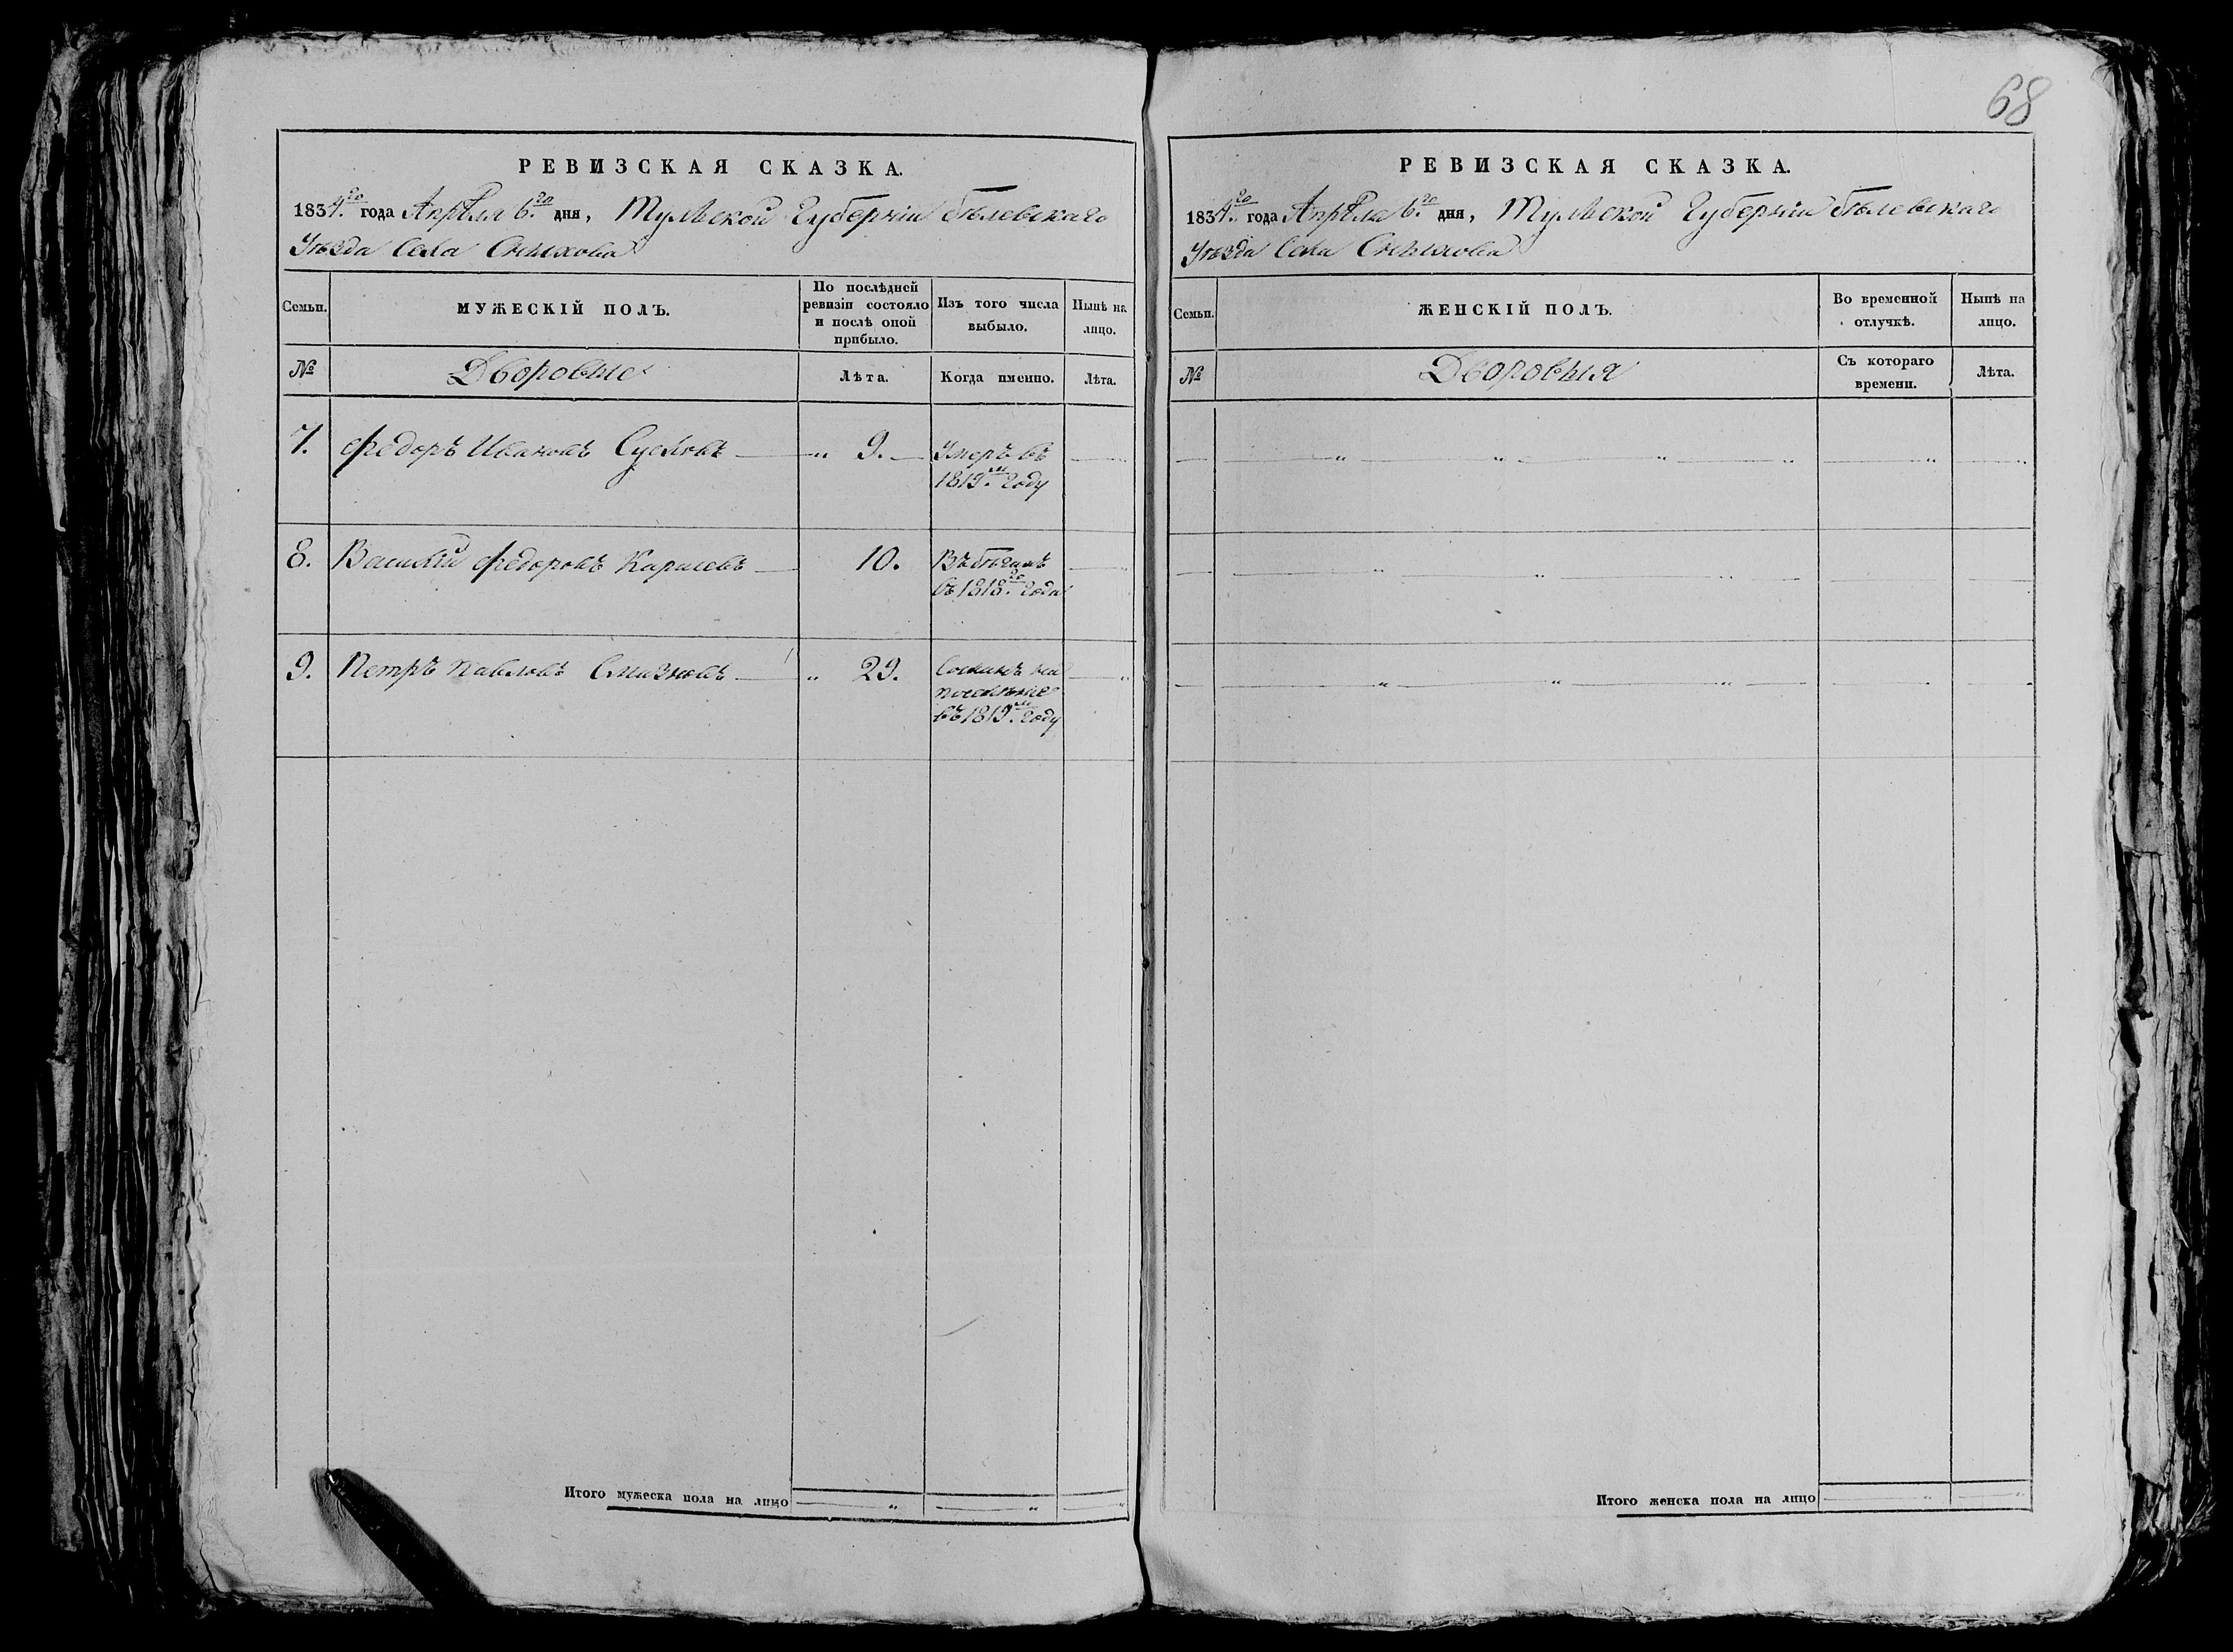 68
РЕВИЗСКАЯ СКАЗКА.
1834.го года Апрѣля 6.го дня, Тульской Губерніи Бѣлевскаго
Уѣзда Села Сныхова
Семьи.
МУЖЕСКІЙ ПОЛЪ.
По послѣдней ревизіи состояло и послѣ оной прибыло.
Изъ того числа выбыло.
Нынѣ на лицо.
№
Дворовые
Лѣта.
Когда именно.
Лѣта.
7. Федоръ Ивановъ „ 9. Умеръ въ
1819.м году
8. Василій Федоровъ 10. Въ бѣгахъ
съ 1818.го года
9. Петръ Павловъ „ 29. Сосланъ на
поселение
въ 1819.м году
Итого мужеска пола на лицо
РЕВИЗСКАЯ СКАЗКА.
1834.го года Апрѣля 6.го дня, Тульской Губерніи Бѣлевскаго
Уѣзда Села Сныхова
Семьи.
ЖЕНСКІЙ ПОЛЪ.
Во временной отлучкѣ.
Нынѣ на лицо.
№
Дворовыя
Съ котораго времени.
Лѣта.
Итого женска пола на лицо